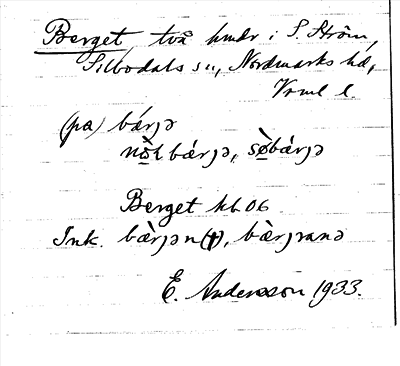 Berget, två hmdr i S. Ström,
Silbodals sn, Nordmarks hd,
Vrml l.
(pa) bárɟə
nọ̀ɫbárɟə, sø̀bárɟə
Berget kb 06
Ink. bæ̀rɟən(p), bæ̀rɟranə
E. Andersson 1933.